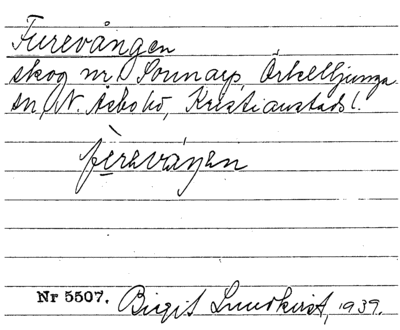 Furevången
skog nr Sonnarp, Örkelljunga
sn, N. Åsbo hd, Kristianstads l.
fὲreváŋen
Nr 5507. Birgit Lundkvist, 1939.